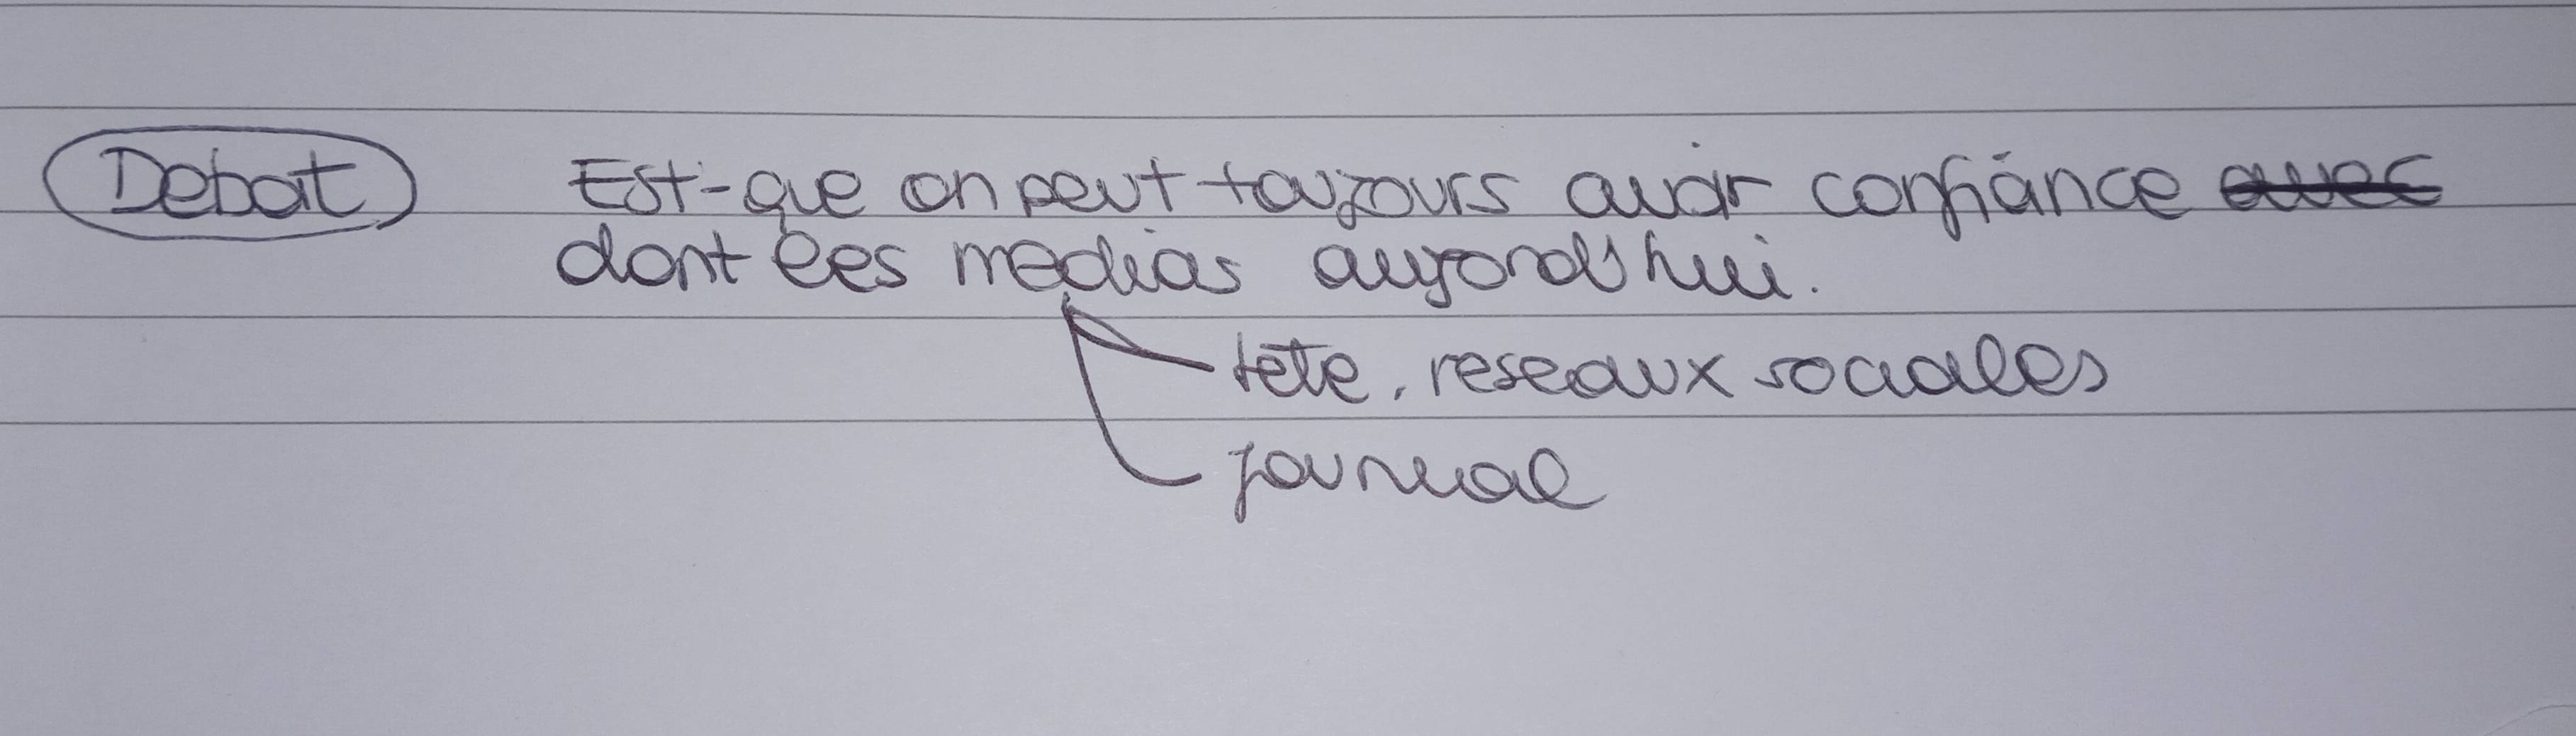 Debat Est-que on peut toujours avoir confiance avec
dont les medias aujord'hui.
tête, reseaux sociales
journal